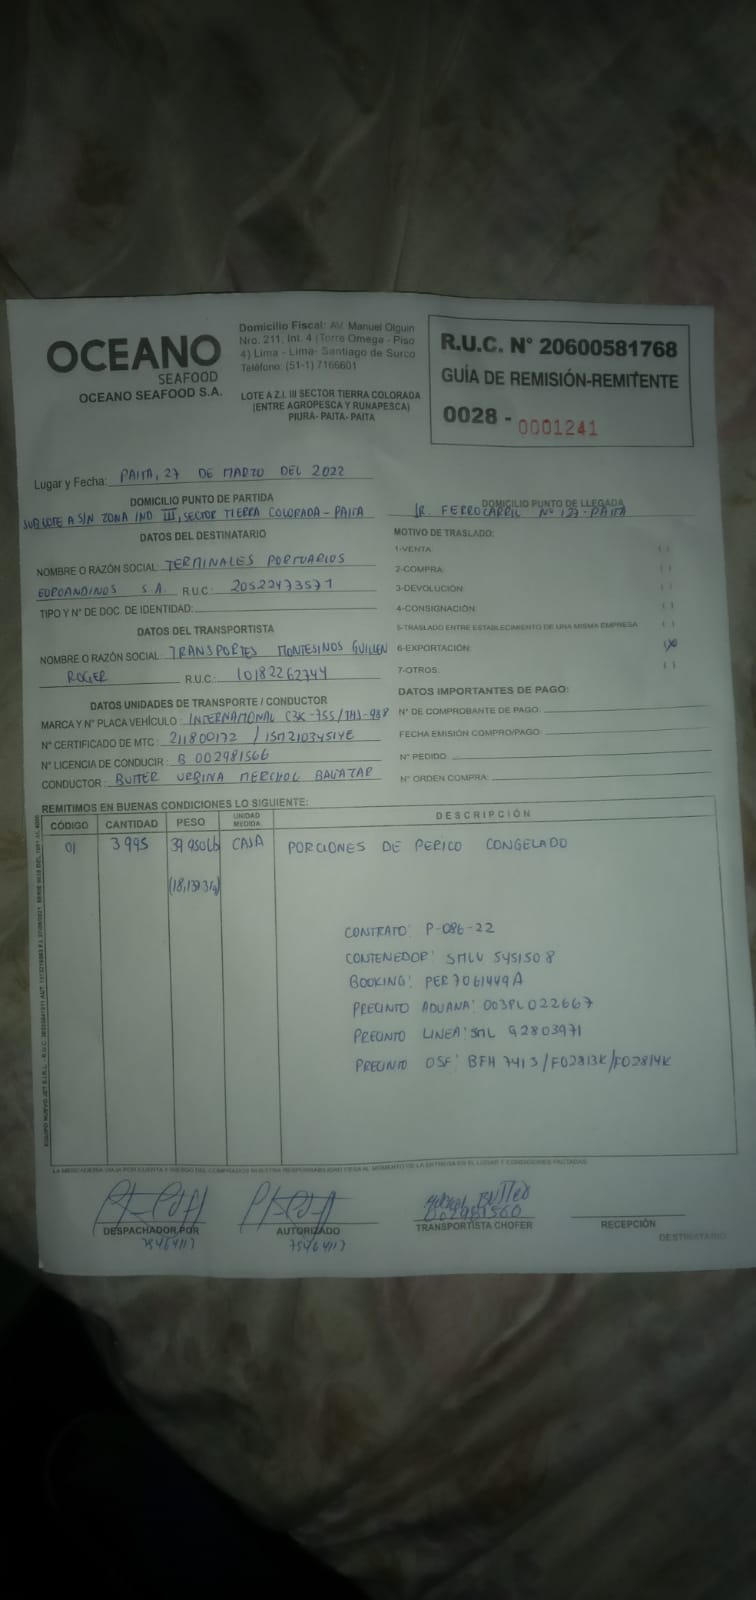 OCEANO
SEAFOOD
OCEANO SEAFOOD S.A.
Domicilio Fiscal: AV. Manuel Olguin
Nro. 211, Int. 4 (Torre Omega - Piso
4) Lima - Lima- Santiago de Surco
Teléfono: (51-1) 7166601
LOTE A Z.I. III SECTOR TIERRA COLORADA
(ENTRE AGROPESCA Y RUNAPESCA)
PIURA- PAITA- PAITA
R.U.C. N° 20600581768
GUÍA DE REMISIÓN-REMITENTE
0028 - 0001241
Lugar y Fecha: PAITA, 27 DE MARZO DEL 2022
DOMICILIO PUNTO DE PARTIDA
SUB LOTE A S/N ZONA IND III, SECTOR TIERRA COLORADA - PAITA
DOMICILIO PUNTO DE LLEGADA
JR. FERROCARRIL N° 127 - PAITA
DATOS DEL DESTINATARIO
NOMBRE O RAZÓN SOCIAL: TERMINALES PORTUARIOS
EUROANDINOS S.A. R.U.C: 20522473571
TIPO Y N° DE DOC. DE IDENTIDAD:
DATOS DEL TRANSPORTISTA
NOMBRE O RAZÓN SOCIAL: TRANSPORTES MONTESINOS GUILLEN
ROGER R.U.C.: 10182262744
MOTIVO DE TRASLADO:
1-VENTA ( )
2-COMPRA: ( )
3-DEVOLUCIÓN: ( )
4-CONSIGNACIÓN: ( )
5-TRASLADO ENTRE ESTABLECIMIENTO DE UNA MISMA EMPRESA ( )
6-EXPORTACIÓN: (X)
7-OTROS: ( )
DATOS UNIDADES DE TRANSPORTE / CONDUCTOR
MARCA Y N° PLACA VEHÍCULO: INTERNATIONAL C3K-755/THJ-938
N° CERTIFICADO DE MTC: 211800172 / 15M21034514E
N° LICENCIA DE CONDUCIR: B 002981566
CONDUCTOR: BUITER URBINA MERCHOL BALTAZAR
DATOS IMPORTANTES DE PAGO:
N° DE COMPROBANTE DE PAGO:
FECHA EMISIÓN COMPRO/PAGO:
N° PEDIDO:
N° ORDEN COMPRA:
REMITIMOS EN BUENAS CONDICIONES LO SIGUIENTE:
CÓDIGO CANTIDAD PESO UNIDAD MEDIDA DESCRIPCIÓN
01 3995 39 950Lb CAJA PORCIONES DE PERICO CONGELADO
CONTRATO: P-086-22
CONTENEDOR: SMLU 545150 8
BOOKING: PER7061449A
PRECINTO ADUANA: 003PL022667
PRECINTO LINEA: SML 92803971
PRECINTO OSF: BFH 7413/F02813K/F02814K
DESPACHADOR POR
75464117
AUTORIZADO
75464117
TRANSPORTISTA CHOFER
RECEPCIÓN
DESTINATARIO